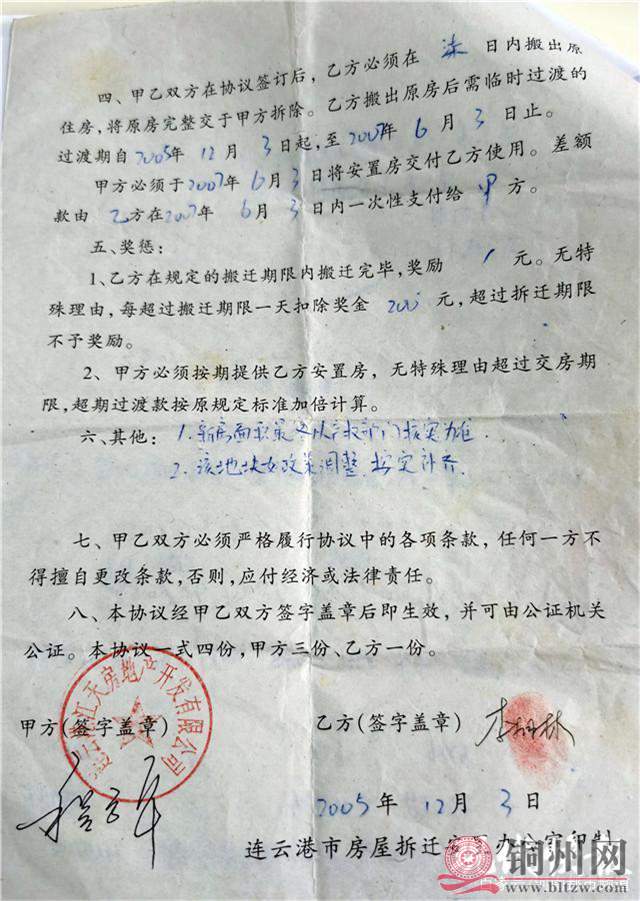 四、甲乙双方在协议签订后，乙方必须在 柒 日内搬出原
住房，将原房完整交于甲方拆除。乙方搬出原房后需临时过渡的
过渡期自2005年 12 月 3 日起，至2007年 6 月 3 日止。
甲方必须于2007年 6月 3 日将安置房交付乙方使用。差额
款由 乙方在2007年 6月 3 日内一次性支付给 甲 方。
五、奖惩：
1、乙方在规定的搬迁期限内搬迁完毕，奖励 / 元。无特
殊理由，每超过搬迁期限一天扣除奖金 200 元，超过拆迁期限
不予奖励。
2、甲方必须按期提供乙方安置房，无特殊理由超过交房期
限，超期过渡款按原规定标准加倍计算。
六、其他：1.新房面积最终以产权部门核实为准.
2.该地块如政策调整 按实补齐.
七、甲乙双方必须严格履行协议中的各项条款，任何一方不
得擅自更改条款，否则，应付经济或法律责任。
八、本协议经甲乙双方签字盖章后即生效，并可由公证机关
公证。本协议一式四份，甲方三份、乙方一份。
江天房地产开发有限公司
甲方(签字盖章) 乙方(签字盖章)
2005年 12月 3日
连云港市房屋拆迁 办公室印制
铜州网
www.bltzw.com